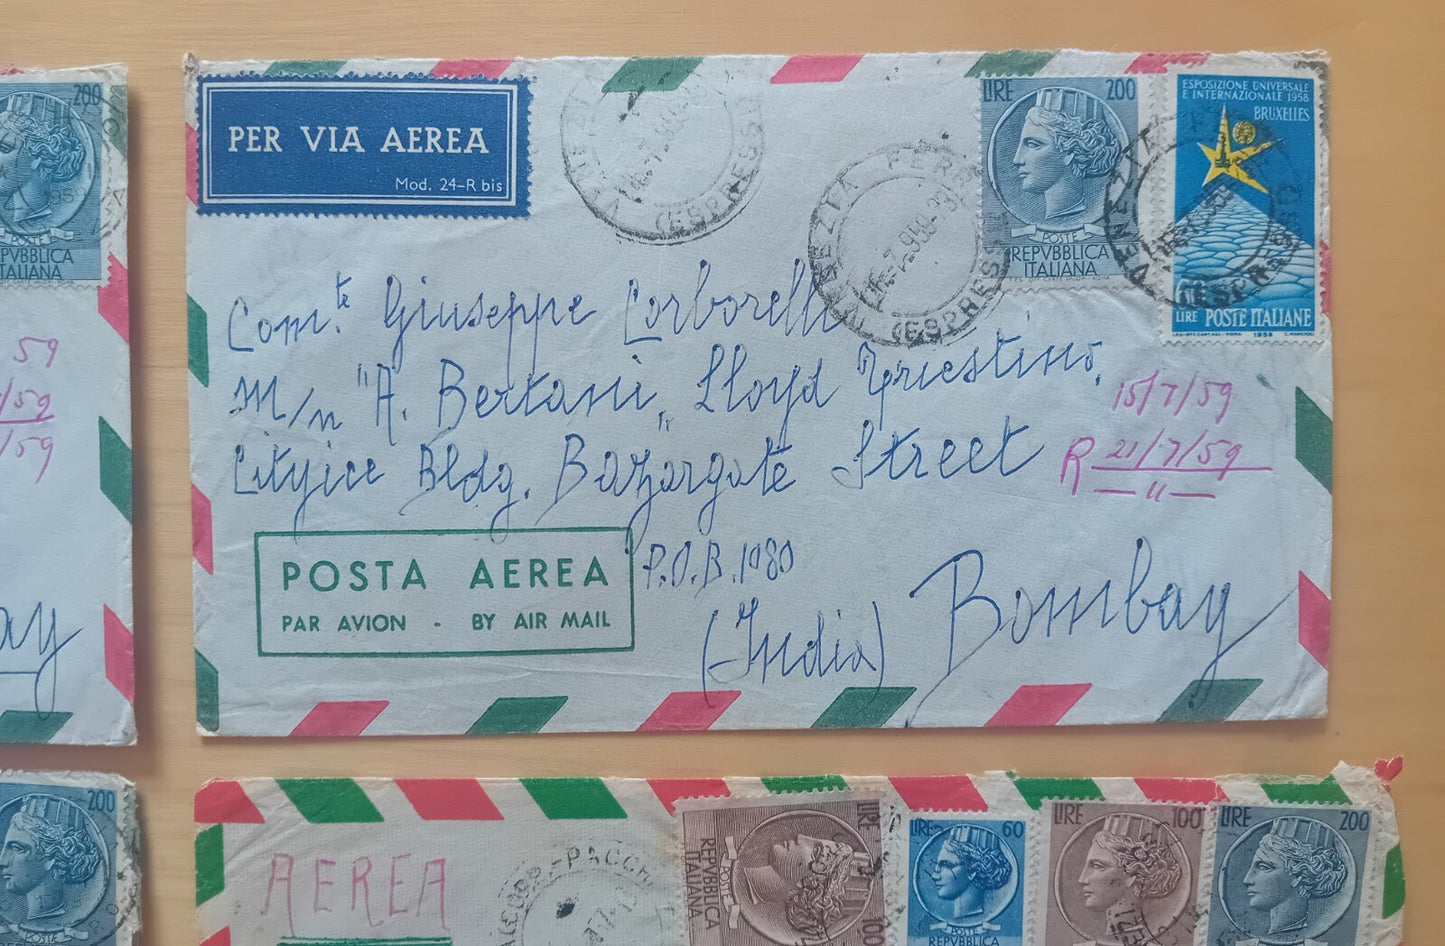 200
REPVBBLICA
ITALIANA
59
/59
/59
ay
PER VIA AEREA
Mod. 24-R bis
VENEZIA FERR.
(ESPRESSI)
VENEZIA FERR.
(ESPRESSI)
LIRE 200
POSTE
REPVBBLICA
ITALIANA
ESPOSIZIONE UNIVERSALE
E INTERNAZIONALE 1958
BRUXELLES
VENEZIA
(ESPRESSI)
LIRE POSTE ITALIANE
1958
Comte. Giuseppe Corborelli
M/n "A. Bertani" Lloyd Triestino,
Cityice Bldg. Bazargate Street
P.O.B. 1080
(India) Bombay
15/7/59
R 21/7/59
— " —
POSTA AEREA
PAR AVION - BY AIR MAIL
200
AEREA
PACCHI
LIRE 100
POSTE
REPVBBLICA
LIRE 60
POSTE
REPVBBLICA
LIRE 100
LIRE 200